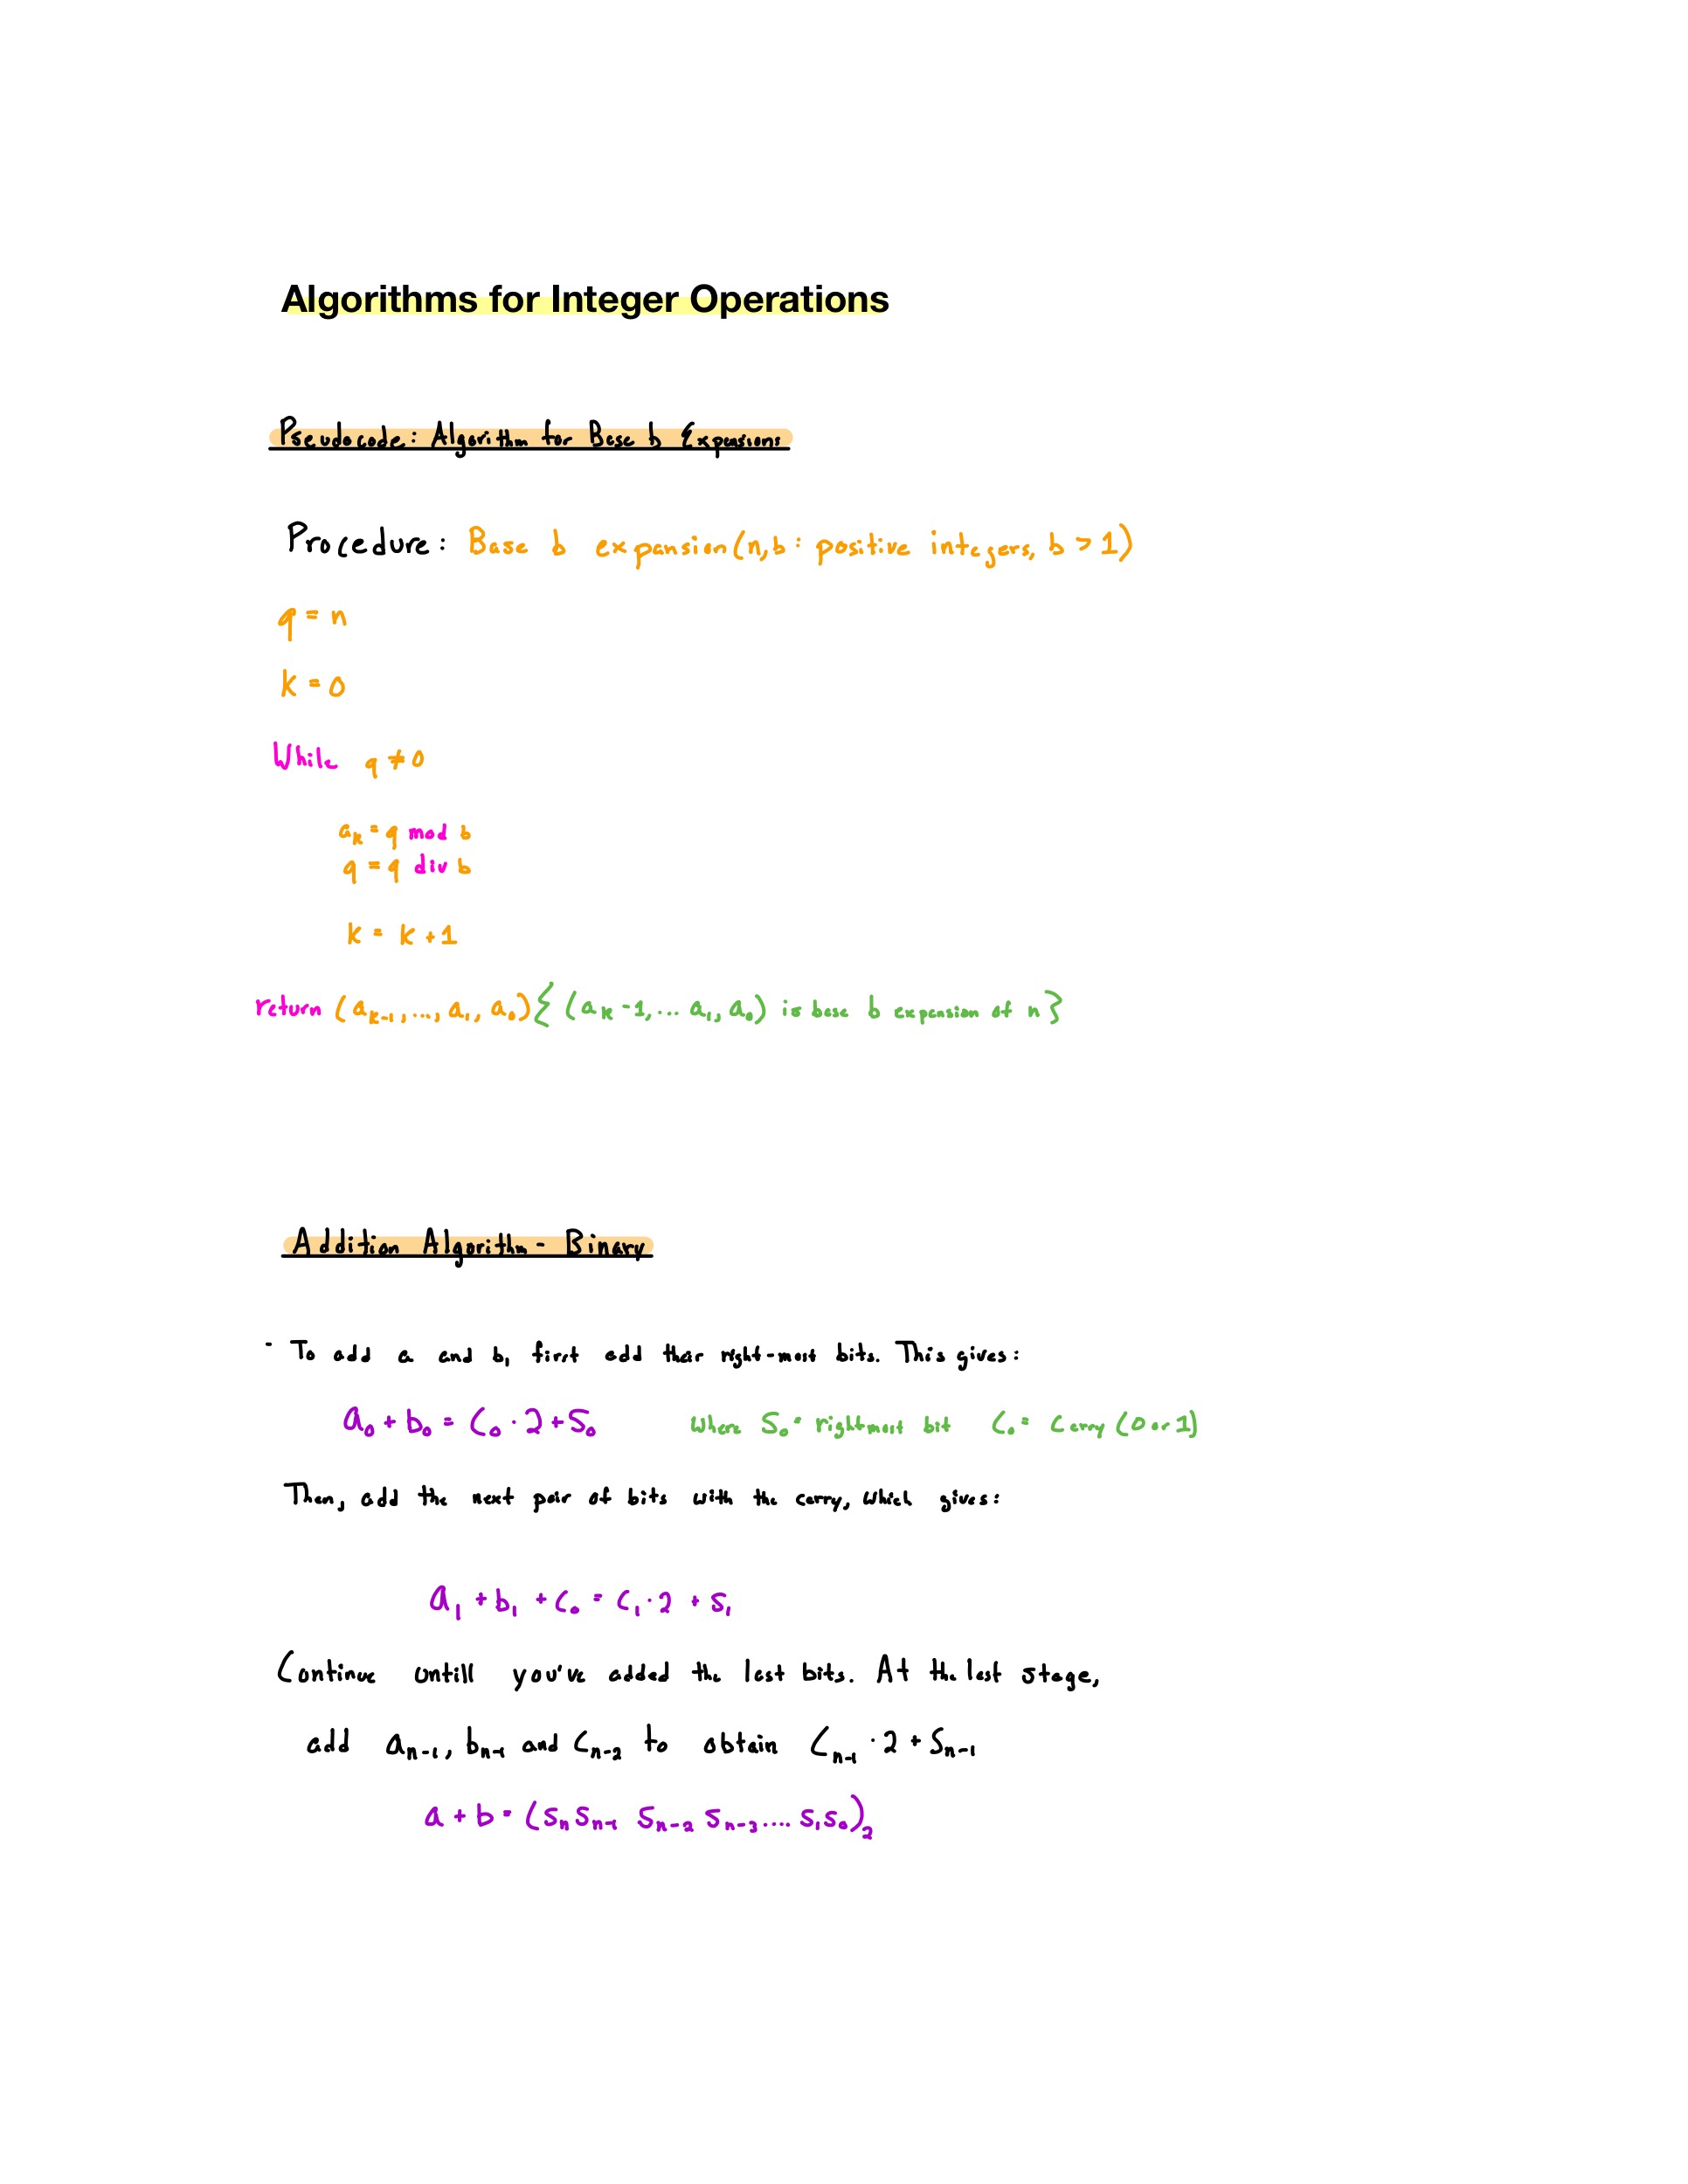 Algorithms for Integer Operations
Pseudocode: Algorithm for Base b Expansions
Procedure: Base b expansion(n,b: positive integers, b > 1)
q = n
k = 0
While q ≠ 0
aₖ = q mod b
q = q div b
k = k + 1
return (aₖ₋₁, ..., a₁, a₀) { (aₖ -1, ... a₁, a₀) is base b expansion of n}
Addition Algorithm - Binary
- To add a and b, first add their right-most bits. This gives:
a₀ + b₀ = C₀ · 2 + S₀ Where S₀ = rightmost bit C₀ = Carry (0 or 1)
Then, add the next pair of bits with the carry, which gives:
a₁ + b₁ + C₀ = C₁ · 2 + S₁
Continue untill you've added the last bits. At the last stage,
add aₙ₋₁, bₙ₋₁ and Cₙ₋₂ to obtain Cₙ₋₁ · 2 + Sₙ₋₁
a + b = (Sₙ Sₙ₋₁ Sₙ₋₂ Sₙ₋₃ .... S₁S₀)₂